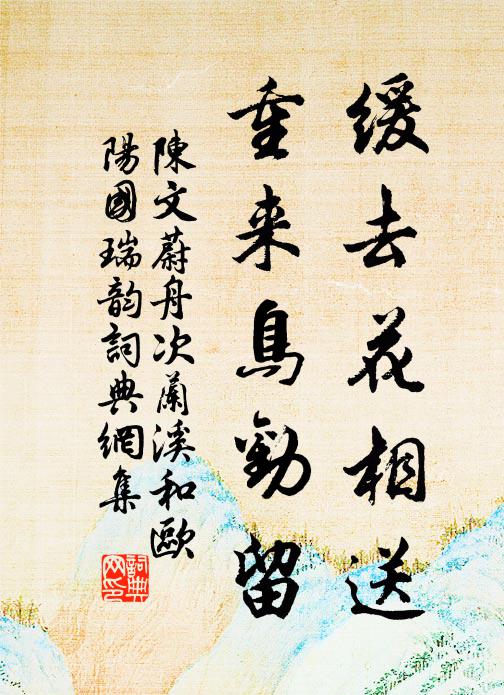 緩去花相送
重来鳥勸留
陳文蔚舟次蘭溪和歐
陽國瑞韵詞典網集
詞典网印